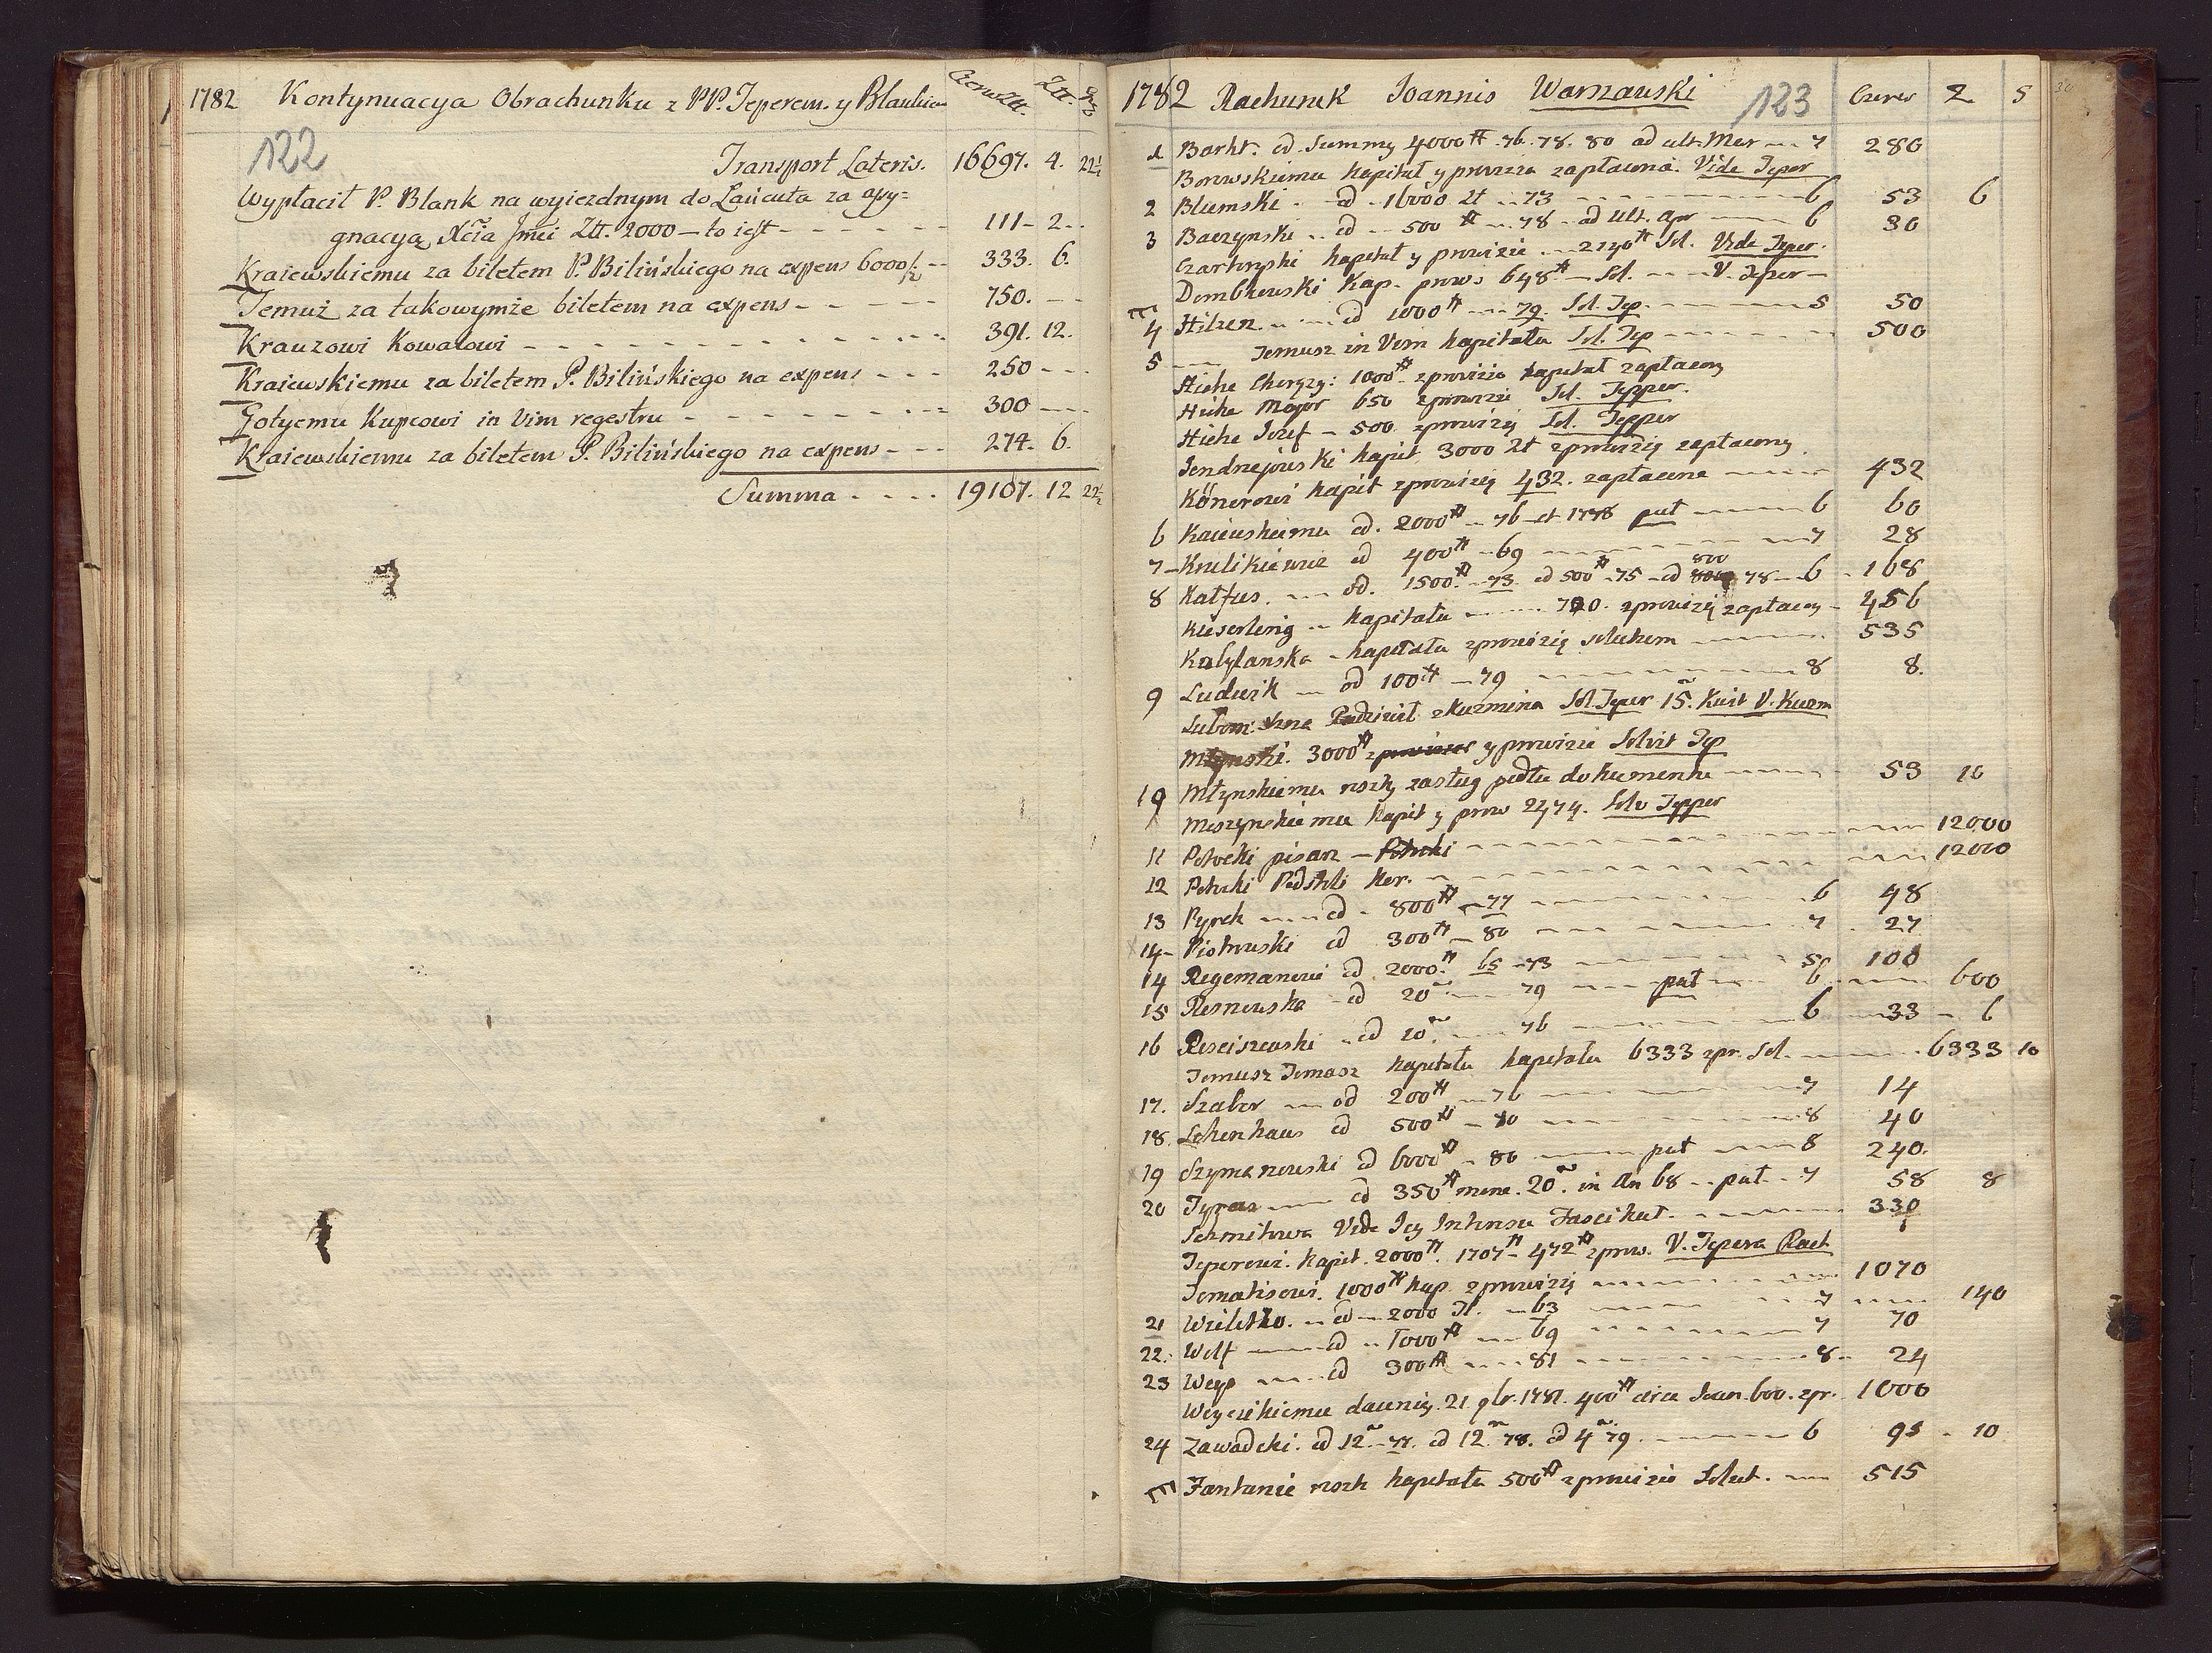 1782 Kontynuacya Obrachunku z PP. Teperem y Blankiem CzerwZłł. Złł. gr
122
Transport Lateris. 16697. 4. 22½
Wypłacił P. Blank na wyiezdnym do Łańcuta za assy=
gnacyą Xcia Jmci Złł. 2000 — to iest - - - 111 - 2 - -
Kraiewskiemu za biletem P. Bilińskiego na expens 6000 - - 333. 6.
Temuż za takowymże biletem na expens - - - 750. - -
Krauzowi Kowalowi - - - 391. 12.
Kraiewskiemu za biletem P. Bilińskiego na expens - - - 250 - - -
Gotyemu Kupcowi in Vim regestru - - - 300 - - -
Kraiewskiemu za biletem P. Bilińskiego na expens - - - 274. 6.
Summa . . . . 19107. 12 22½
1782 Rachunek Joannis Warszawski 123 Czerw Z S
1 Barkt. od Summy 4000 # 76. 78. 80 ad ult. Mar — 7 280
Borowskiemu kapitał y prowizia zapłacona. Vide Teper
2 Blumski - od - 16000 Zł - 73 - - - 6 53 6
3 Baczynski - od - 500 # - 78 - ad ult. apr - 6 30
Czartoryski kapitał y prowizie - 2120 # Sol. Vide Teper.
Dombkowski Kap. prow: 648 # - Sol. - - V. Teper -
4 Hilzen - od 1000 # - 79. Sol. Tep - - - 5 50
5 — Temusz in Vim kapitału Sol. Tep - - - 500
Hiche Chorąży: 1000 # z prowizio kapitał zapłacony
Hiche Major 650 z prowizii Sol. Tepper.
Hiche Jozef - 500 z prowizią Sol. Tepper
Jendrzejowski kapit. 3000 Zł z prowizią zapłacony
Könerowi kapit z prowizią 432. zapłacone - - 432
6 Kaiewskiemu od. 2000 # - 76 et 1778 put - - 6 60
7 - Krulikiewicz od 400 # - 69 - - - 7 28
8 Katfus. - od. 1500 # - 73 od 500 # - 75 - od 800 78 - 6 - 168
Kieserling - kapitału - 720. z prowizią zapłacony - 456
Kobylanska - kapitału z prowizią solutum - - - 535
9 Ludwik - od 100 # - 79 - - - 8 8.
Lubom: Xzna Podział z Kuzmina Sol. Teper 15. Kwit V. Kuzm
Młynski. 3000 # y prowizie Solvit Tep
10 Młynskiemu reszty zasług podłu dokumentu - - - 53 10
Moszynskiemu kapit y prow 2474. Solv Tepper
11 Potocki pisarz - Potocki - - - 12000
12 Potocki Podstoli Kor. - - - 12000
13 Pyrch - od - 800 # - 77 - - - 6 48
14 - Piotrowski od 300 # - 80 - - - 7 27
14 Regemanowi od 2000. # 65 - 73 - - - 5 100
15 Resnowska - od 20 - 79 - put - 6 - - 600
16 Resciszewski - od 10 - 76 - - - 6 - 33 - 6
Temusz Tomasz kapitału kapitału 6333 z pr. Sol. - - - 6333 10
17. Szaber - od 200 # - 76 - - - 7 14
18. Schenhaus od 500 # - 80 - - - 8 40
19 Szymanowski od 6000 # - 80 - put - 8 240.
20 Tyraz - od 350 # mone. 20. in An 68 - put - 7 58 8
Szmitowa Vide Jey Fascikuł. - - - 330
Teperowi. kapit. 2000 #. 1707 # - 472 # z prow. V. Tepera Rach
Tomatisowi. 1000 # kap. z prowizią - - - 1070
21 Wieletko. - od - 2000 Zł. - 63 - - - 7 - - 140
22. Wolf - od - 1000 # - 69 - - - 7 70
23 Weyp - od 300 # - 81 - - - 8 - 24
Woyczikiemu dawniey. 21 9br. 1781. 400 # circa Ioan. 600. z pr. 1000
24 Zawadcki. od 12 - 77. od 12 78. od 4 79 - - - 6 95 - 10
Fontanie resch kapitału 500 # z prowizio Solut. - - 515